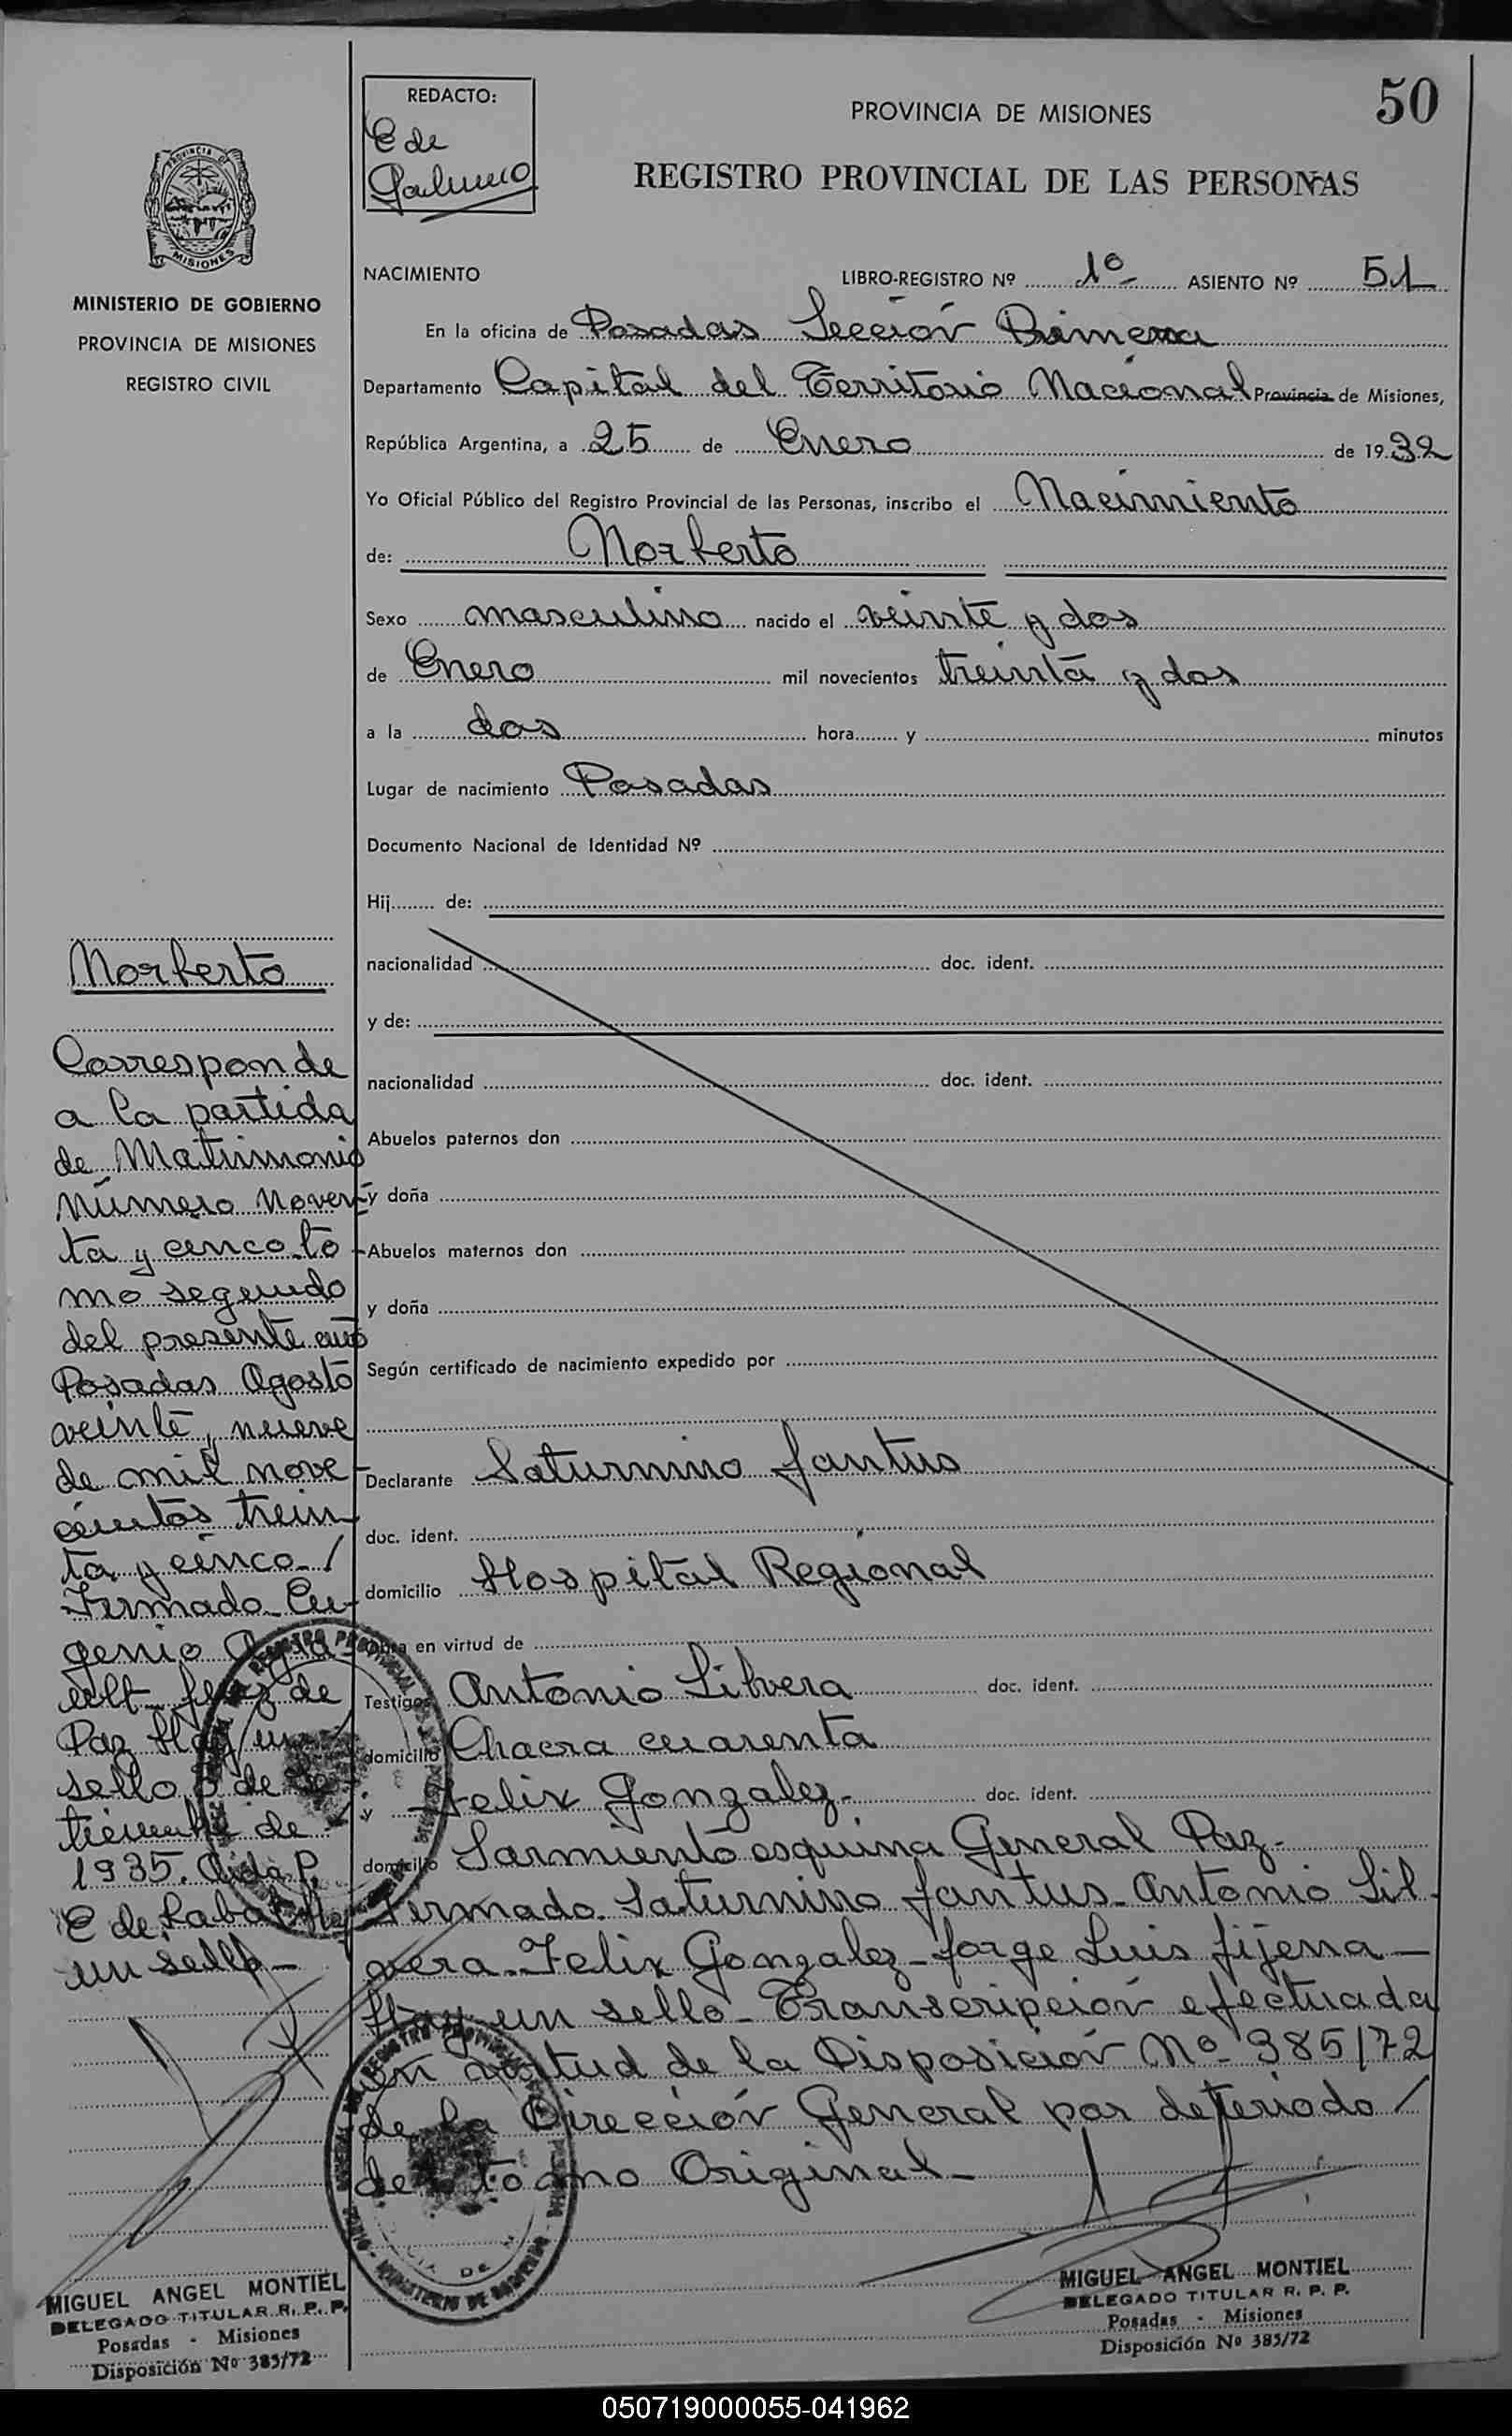 50
REDACTO:
E de
PROVINCIA DE MISIONES
REGISTRO PROVINCIAL DE LAS PERSONAS
PROVINCIA DE
MISIONES
MINISTERIO DE GOBIERNO
PROVINCIA DE MISIONES
REGISTRO CIVIL
NACIMIENTO LIBRO-REGISTRO Nº 1º ASIENTO Nº 51
En la oficina de Posadas Sección Primera
Departamento Capital del Territorio Nacional Provincia de Misiones,
República Argentina, a 25 de Enero de 1932
Yo Oficial Público del Registro Provincial de las Personas, inscribo el Nacimiento
de: Norberto
Sexo masculino nacido el veinte y dos
de Enero mil novecientos treinta y dos
a la dos hora y minutos
Lugar de nacimiento Posadas
Documento Nacional de Identidad Nº
Hij de:
nacionalidad doc. ident.
y de:
nacionalidad doc. ident.
Abuelos paternos don
y doña
Abuelos maternos don
y doña
Según certificado de nacimiento expedido por
Declarante Saturnino Jantus
doc. ident.
domicilio Hospital Regional
Obra en virtud de
Testigos Antonio Silvera doc. ident.
domicilio Chacra cuarenta
y Felix Gonzalez- doc. ident.
domicilio Sarmiento esquina General Paz-
Firmado. Saturnino Jantus- Antonio Sil-
vera- Felix Gonzalez- Jorge Luis Jijena-
Hay un sello- Transcripción efectuada
en virtud de la Disposición Nº 385/72
de la Dirección General por deteriodo/
del tomo Original-
Norberto
Corresponde
a la partida
de Matrimonio
Número noven-
ta y cinco to-
mo segundo
del presente año
Posadas Agosto
veinte y nueve
de mil nove-
cientos trein
ta y cinco-/
Firmado- Eu-
genio
Juez de
Paz Hay un/
sello, 6 de Se-
tiembre de
1935. Aida P.
E de Hay
un sello-
MIGUEL ANGEL MONTIEL
DELEGADO TITULAR R. P. P.
Posadas - Misiones
Disposición Nº 385/72
MIGUEL ANGEL MONTIEL
DELEGADO TITULAR R. P. P.
Posadas - Misiones
Disposición Nº 385/72
050719000055-041962